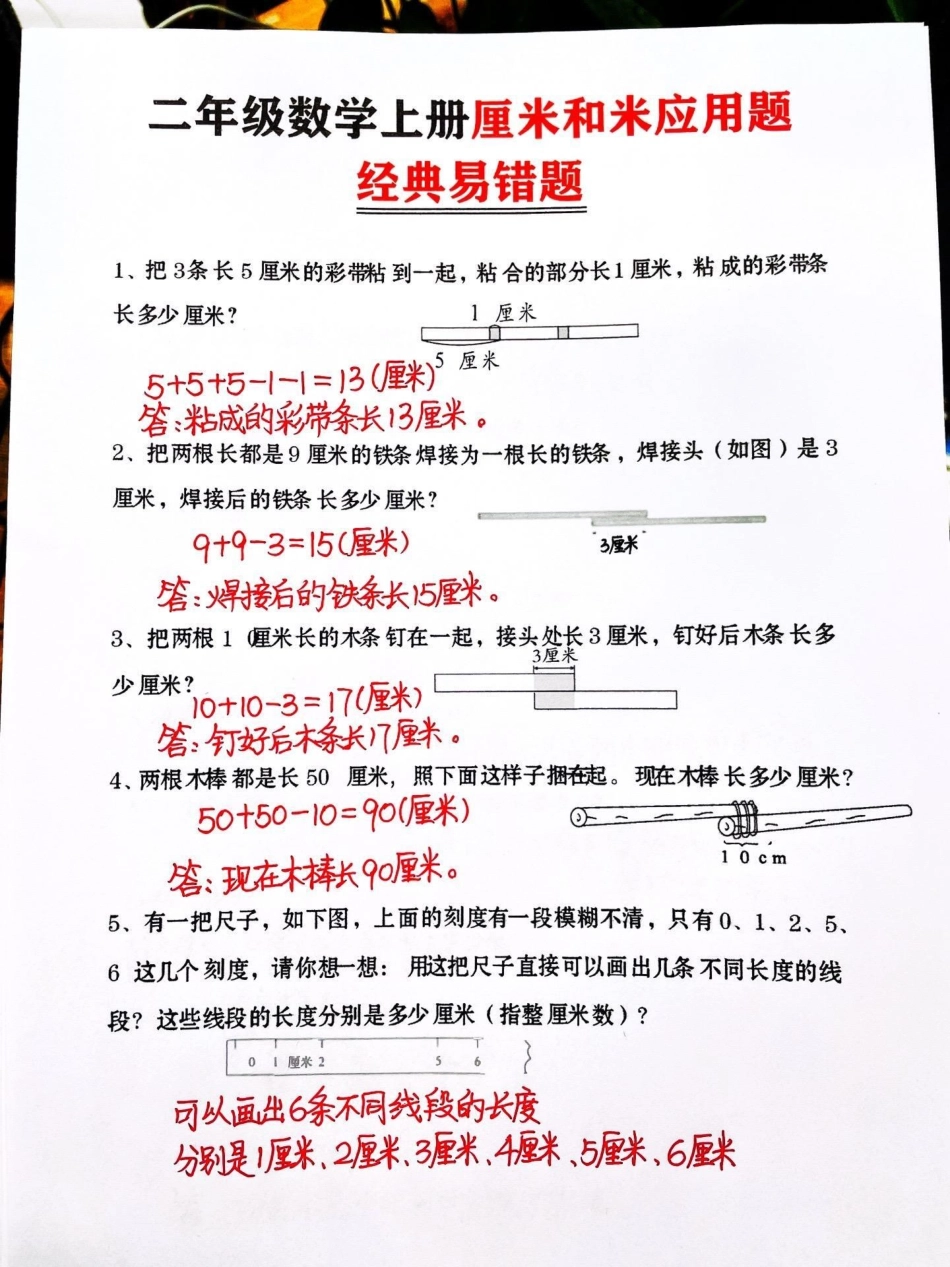 二年级数学上册厘米和米应用题
经典易错题
1、把3条长5厘米的彩带粘到一起，粘合的部分长1厘米，粘成的彩带条
长多少厘米？
1 厘米
5 厘米
5+5+5-1-1=13(厘米)
答：粘成的彩带条长13厘米。
2、把两根长都是9厘米的铁条焊接为一根长的铁条，焊接头（如图）是3
厘米，焊接后的铁条长多少厘米？
3厘米
9+9-3=15(厘米)
答：焊接后的铁条长15厘米。
3、把两根10厘米长的木条钉在一起，接头处长3厘米，钉好后木条长多
少厘米？
3厘米
10+10-3=17(厘米)
答：钉好后木条长17厘米。
4、两根木棒都是长50 厘米，照下面这样子捆在起。现在木棒长多少厘米？
50+50-10=90(厘米)
10cm
答：现在木棒长90厘米。
5、有一把尺子，如下图，上面的刻度有一段模糊不清，只有0、1、2、5、
6 这几个刻度，请你想一想：用这把尺子直接可以画出几条不同长度的线
段？这些线段的长度分别是多少厘米（指整厘米数）？
0 1 厘米 2 5 6
可以画出6条不同线段的长度
分别是1厘米、2厘米、3厘米、4厘米、5厘米、6厘米